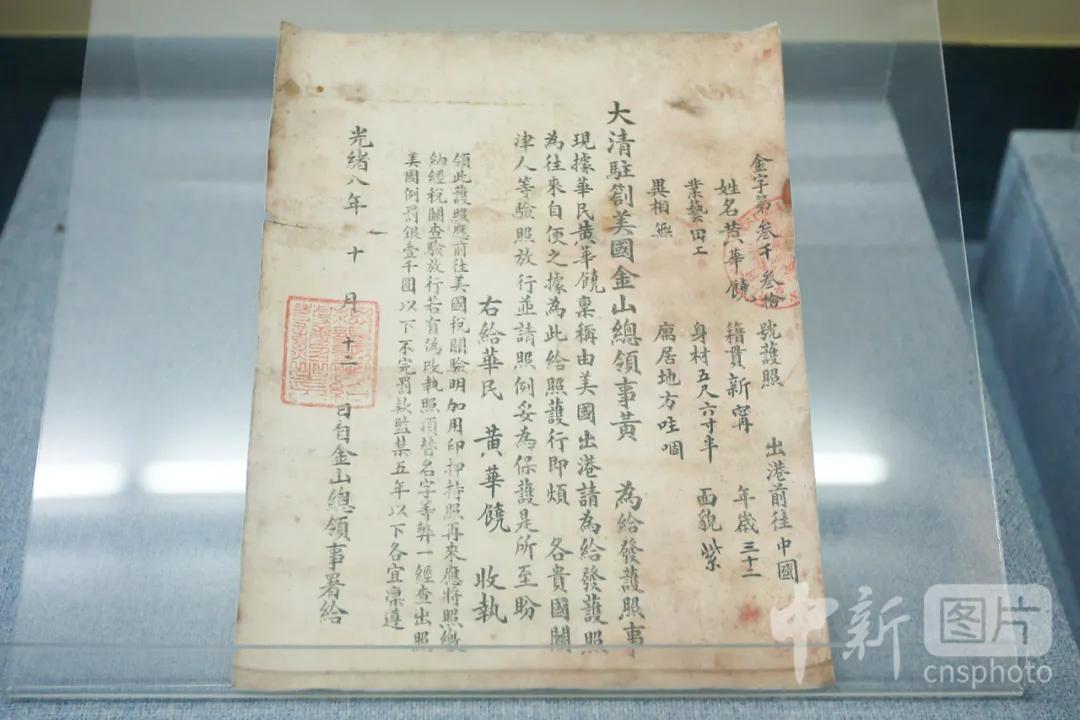 金字第叁千叁拾號護照 出港前往中國
姓名黄華饒 籍貫新寧 年歲三十二
業藝田工 身材五尺六寸半 面貌紫
異相無 寓居地方哇㘣
大清駐劄美國金山總領事黄 為給發護照事
現據華民黄華饒稟稱由美國出港請為給發護照
為往來自便之據為此給照護行即煩 各貴國關
津人等驗照放行並請照例妥為保護是所至盼
右給華民 黄華饒 收執
領此護照應前往美國稅關驗明加用印押持照再來應將照繳
納經稅關查驗放行若有偽改執照頂替名字等弊一經查出照
美國例罰銀壹千圓以下不完罰款監禁五年以下各宜凜遵
光緒八年 十 月 十二 日自金山總領事署給
中新圖片
cnsphoto